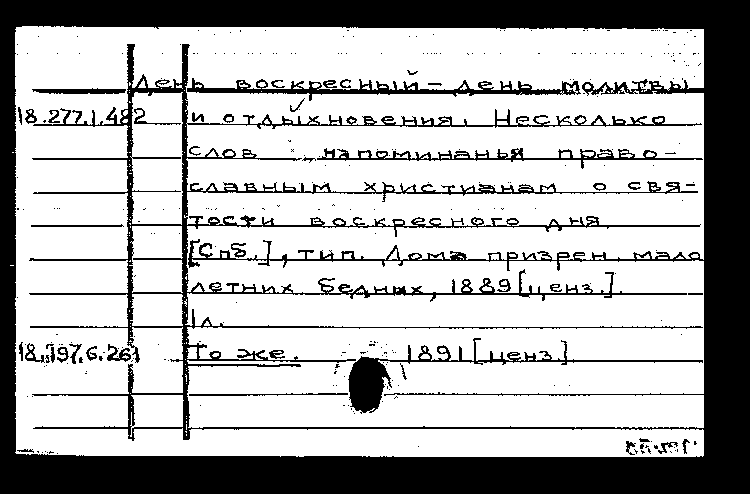 День воскресный – день молитвы
18.277.1.482 и отдыхновения. Несколько
слов напоминанья право-
славным христианам о свя-
тости воскресного дня.
[Спб.], тип. Дома призрен. мало
летних бедных, 1889 [ценз.].
1 л.
18.197.6.261 То же. 1891 [ценз.]